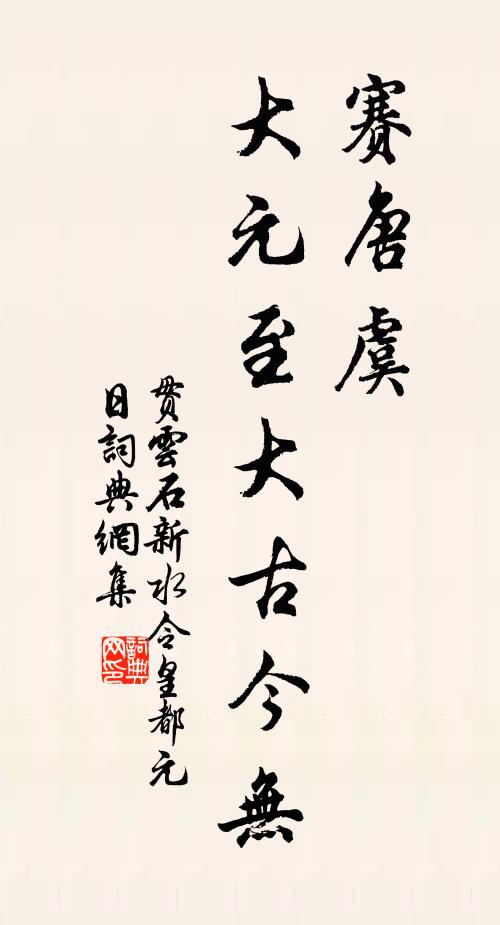 賽唐虞
大元至大古今無
貫雲石新水令皇都元
日詞典網集
詞典
网印